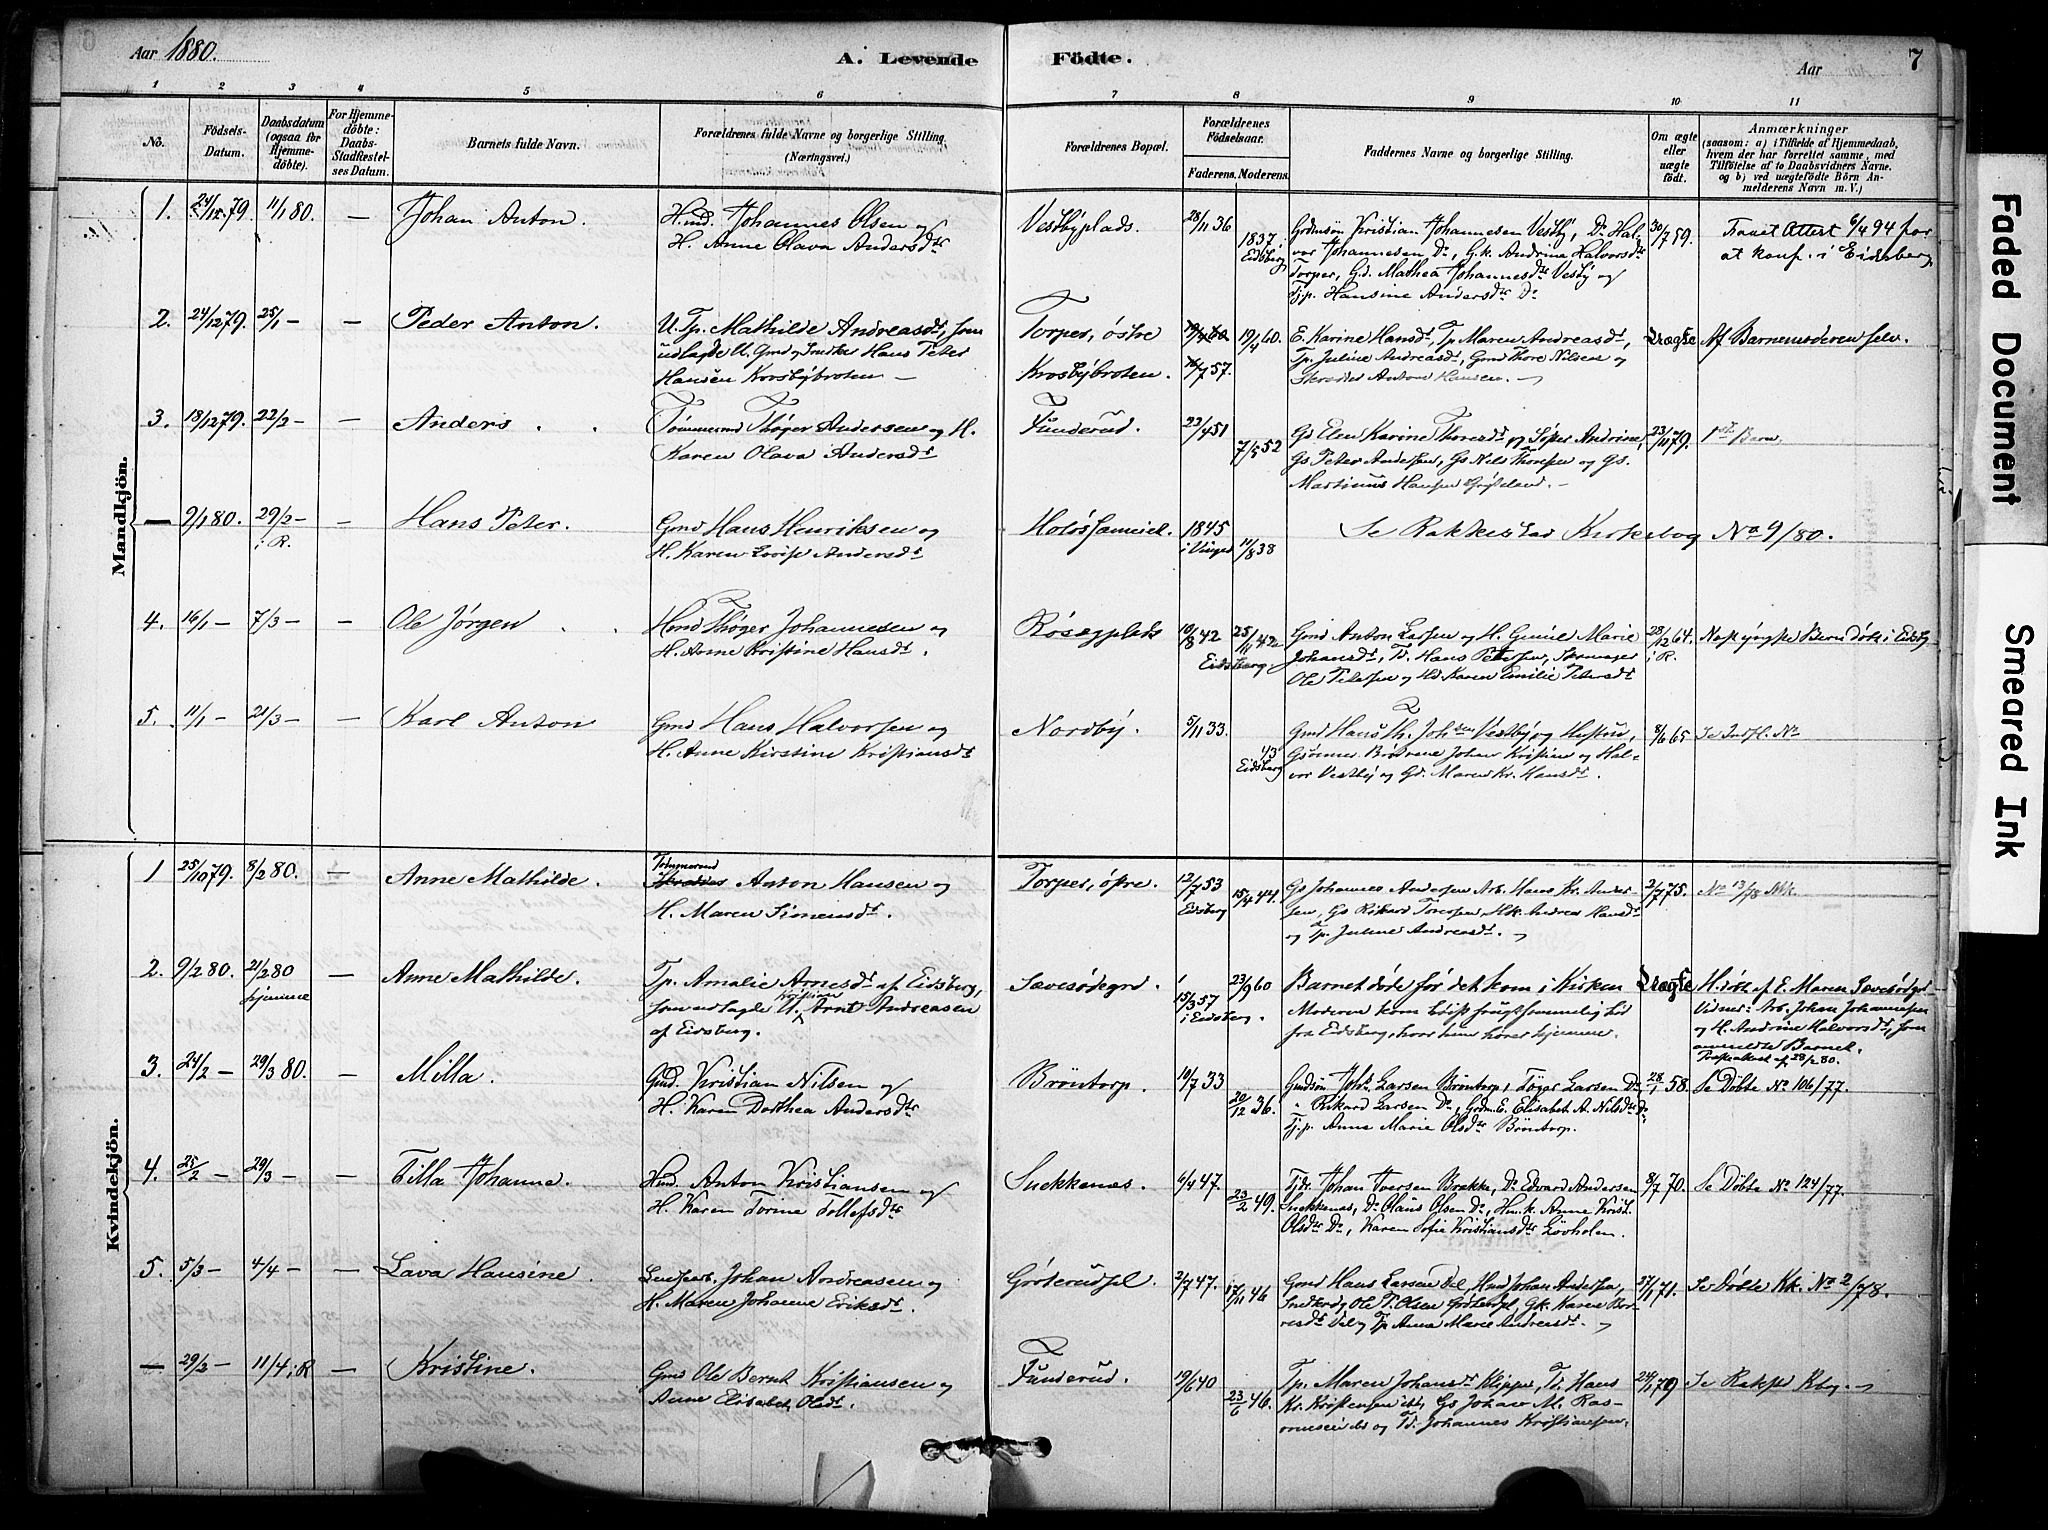 Aar 1880.
A. Levende Födte.
Aar
7
1 2 3 4 5 6 7 8 9 10 11
No.
Födsels-Datum.
Daabsdatum (ogsaa for Hjemmedöbte).
For Hjemmedöbte: Daabs-Stadfæstelses Datum.
Barnets fulde Navn.
Forældrenes fulde Navne og borgerlige Stilling.
(Næringsvei.)
Forældrenes Bopæl.
Forældrenes Födselsaar.
Faderens. Moderens.
Faddernes Navne og borgerlige Stilling.
Om ægte eller uægte födt.
Anmærkninger
(saasom: a) i Tilfælde af Hjemmedaab,
hvem der har forrettet samme, med
Tilföielse af to Daabsvidners Navne.
og b) ved uægtefödte Börn Anmelderens Navn m. V.)
Mandkjön.
1. 79. 11/1 80. — Johan Anton Hmd. Johannes Olsen og
H. Anne Olava Andersdtr
Vestbyplads. 28/11 36 1837 i Eidsberg
Grdmsön Kristian Johannesen Vestby, Do Halvor Johannesen Do, G.k. Andrine Halvorsdtr
Torper, G.d. Mathea Johannesdtr Vestby og
Tj.p. Hansine Andersdtr Do
30/7 59. Faaet Attest 6/4 94 for
at konf. i Eidsberg.
2. 24/12 79. 25/1 — — Peder Anton. U. Tp. Mathilde Andreasdt, som
udlagde U. Gmd og Snedker Hans Peter
Hansen Krosbybroten —
Torper, östre
Krosbybroten. 16/7 57. 19/4 60.
E. Karine Hansdt, Tp Maren Andreasdt,
Tp. Juline Andreasdt, Gmd Thore Nilsen og
Skrædder Anton Hansen. —
Uægte Af Barnemoderen selv.
3. 18/12 79. 22/2 — — Anders Tømmermd Thøger Andersen og H.
Karen Olava Andersdt
Funderud. 23/4 51 7/5 52
Gd Elen Karine Thoresdt og Söster Andrine,
Gs Peter Andersen, Gs Nils Thoresen og Gs.
Martinus Hansen
23/11 79. 1ste Barn.
— 9/1 80. 29/2 — i R. — Hans Peter. Gmd Hans Henriksen og
H. Karen Lovise Andersdt
1845 i Vinger 11/8 38
Se Rakkestad Kirkebog No 9/80.
4. 16/1 — 7/3 — — Ole Jørgen Hmd Thøger Johannesen og
H. Anne Kristine Hansdt.
Røsægplads 10/8 42 25/11 42 Eidsberg.
Gmd Anton Larsen og H. Gunil Marie
Johansdt, Td. Hans Petersen,
Ole Petersen og Hd Karen Emilie Petersdt
28/12 64. i R. Næst yngste Barn döbt i Eidsb.
5. 11/1 — 21/3 — — Karl Anton Gmd Hans Halvorsen og
H. Anne Kirstine Kristiansdt
Nordby. 5/11 33. 43 Eidsberg
Gmd Hans Th. Vestby og Hustru,
Gsönner Brödrene Johan Kristian og Halvor Vestby og Gd. Maren Kr. Hansdt.
8/6 65 Se No
Kvindekjön.
1 25/10 79. 8/2 80. — Anne Mathilde. Tömmermd
Anton Hansen og
H. Maren Simensdt.
Torper, östre. 12/7 53 Eidsberg 15/4 44.
Gs Johannes Andersen Arb. Hans Kr. Andersen, Gs Rikard Toresen Hk. Andrea Hansdt
og Tp. Juline Andreasdt. —
2/7 75. No 13/78 Mk.
2. 9/2 80. 21/2 80 hjemme — Anne Mathilde. Tp. Amalie Arnesdt af Eidsberg,
som udlagde U. Kristian Arnt Andreasen
af Eidsberg.
Sævesödegrd 15/3 57 i Eidsberg. 23/9 60
Barnet döde för det kom i Kirken
Moderen kom frugtsommelig hid
fra Eidsberg, hvor hun hörer hjemme.
Uægte H. döbt af E. Maren Sævesödegrd
Vidner: Arb. Johan Johannesen
og H. Andrine Halvorsdt, som
anmeldte Barnet.
28/2 80.
3. 24/2 — 29/3 80. — Milla. Gmd. Kristian Nilsen og
H. Karen Dorthea Andersdtr
Bröntorp. 10/7 33 20/12 36.
Gmdsön Johs. Larsen Bröntorp, Töger Larsen Do
Rikard Larsen Do, Grdm.E. Elisabet A. Nilsdtr Do
Tj.p. Anne Marie Olsdtr Bröntorp.
28/1 58. Se Döbte No 106/77.
4. 25/2 — 29/3 — — Tilla Johanne. Hmd. Anton Kristiansen og
H. Karen Torine Tollefsdtr
Snekkenæs. 6/4 47. 23/2 49.
Tjdr. Johan Iversen Brække, Do Edvard Andersen
Snekkenæs, Do Olaus Olsen Do, Hm.k. Anne Krist.
Olsdtr Do, Karen Sofie Kristiansdtr Lövholm.
8/7 70. Se Döbte No 124/77.
5. 5/3 — 4/4 — — Lava Hansine. Johan Andreasen og
H. Maren Johanne Eriksdt.
2/7 47. 17/11 46
Gmd Hans Larsen Hmd Johan Andersen,
Ole P. Olsen Gk. Karen og Tp Anne Marie Andreasdt. —
27/1 71. Se Döbte Kk. No 2/78.
— 29/2 — 11/4 i R — Kristine. Gmd Ole Bernt Kristiansen og
Anne Elisabet Olsdt.
Funderud. 19/6 40 23/6 46.
Tp. Maren Johansdt Klippe, Td. Hans
Kr. Kristensen ibd, Gs Johan M. Rasmussen ibd og Td. Johannes Kristiansen.
24/1 79 Se Rakst. Kbog. —
Faded Document
Smeared Ink